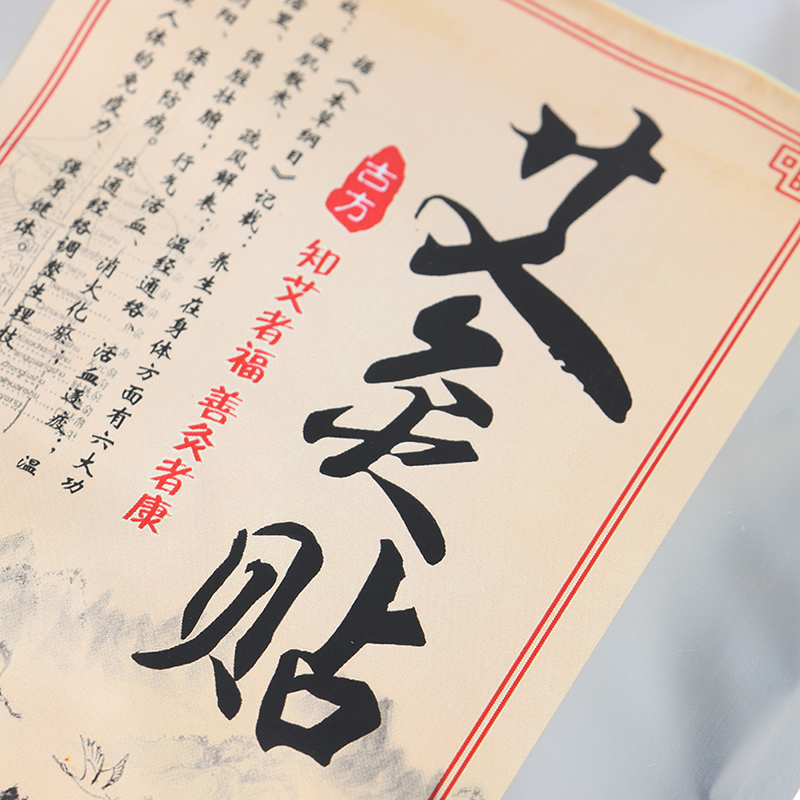 艾灸贴
古方
知艾者福 善灸者康
据《本草纲目》记载：养生在身体方面有六大功
温肌散寒、疏风解表；温经通络、活血逐痹；温
里、强脏壮腑；行气活血、消火化瘀；
阴阳、保健防病。疏通经络调整生理技
人体的免疫力、强身健体。